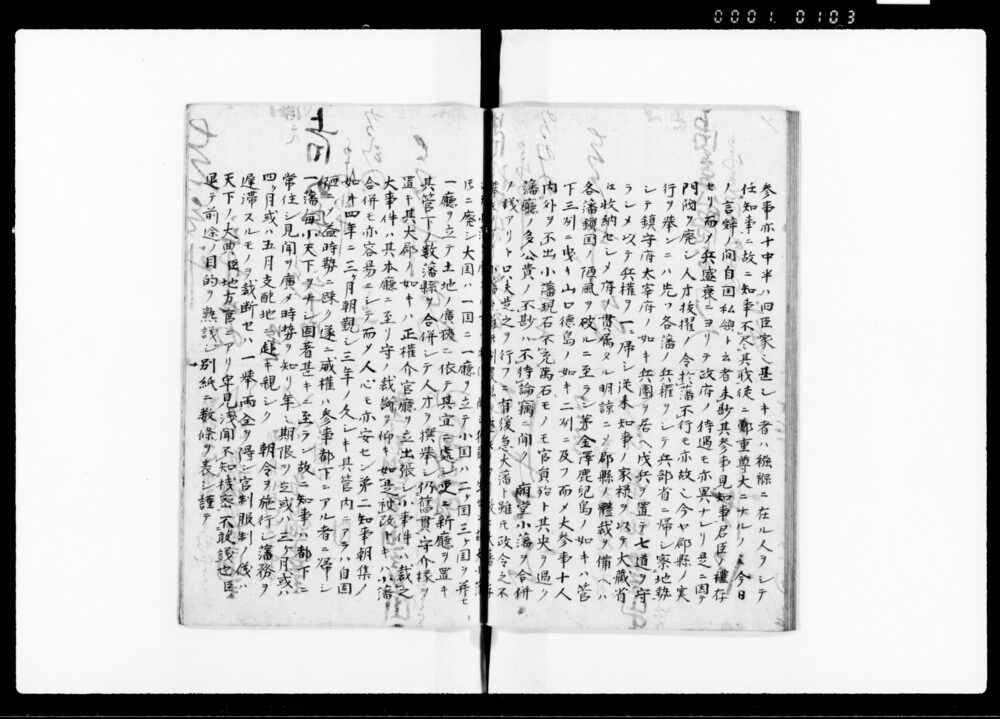 0001.0103
参事亦十中半ハ旧臣家ニ甚シキ者ハ襁褓ニ在ル人ヲシテ
任知事ニ故ニ知事不尽其職徒ニ鄭重尊大ニナルノミ今日
ノ言辞ノ間自国私領ト云者未尠其参事見知事君臣ノ礼存
セリ而メ兵盛衰ニヨリテ政府ノ待遇モ亦異ナレリ是ニ因テ
門閥ヲ廃シ人才抜擢ノ令於藩不行モ亦故シ今ヤ郡県ノ実
行ヲ挙ンニハ先ツ各藩ノ兵権ヲシテ兵部省ニ帰シ察地勢
シテ鎮守府太宰府ノ如キ兵団ヲ居ヘ戍兵ヲ置テ七道ヲ守
ラシメ以テ兵権ヲ一ニ帰シ従来知事ノ家禄ヲ以テ大蔵省
ニ収納セシメ府ヲ貫属タル明諒ニメ郡県ノ体裁ヲ備ヘハ
各藩鎖国ノ陋風ヲ破ルニ至ラン茅金澤鹿児島ノ如キハ管
下三州ニ曳キ山口徳島ノ如キ二州ニ及フ而メ大参事十人
内外ヲ不出小藩現石不充萬石モノモ官員殆ト其央ヲ過ク
藩廳ノ多公費ノ不尠ハ不待論竊ニ聞ク 廟堂小藩ヲ合併
ノ議アリト口夫是之ヲ行フニ有後怠大藩ト雖氏政令之不
氏ニ廃シ大国ハ一国ニ一廳ヲ立テ小国ハ二ヶ国三ヶ国ヲ并セニ
一廳ヲ立テ土地ノ廣狭ニ依テ其宜ニ處シ更ニ新廳ヲ置キ
其管下ノ数藩縣ヲ合併シテ人才ヲ撰挙シ仍舊貫守介様ヲ
置キ其大郡ノ如キハ正權介官廳ヲ立出張シ小事件ハ裁之
大事件ハ其本廳ニ至リ守ノ裁絢ヲ仰キ如是改政トキハ小藩
合併モ亦容易ニシテ而メ人心モ亦安セン第二知事朝集ノ
如キ四年ニ三ヶ月朝覲シ三年ノ久シキ其管内ニアラハ自固
陋ニメ益時勢ニ疎ク遂ニ威權ハ参事都下ニアル者ニ帰シ
一藩毎小天下ヲナシ固著甚キニ至ラン故ニ知事ハ都下ニ
常住シ見聞ヲ廣メ時勢ヲ知リ年ニ期限ヲ立或ハ三ヶ月或ハ
四ヶ月或ハ五月支配地ニ赴キ親シク 朝令ヲ施行シ藩務ノ
遅滞スルモノヲ裁断セハ一挙両全ヲ得ン官制服制ノ儀ハ
天下ノ大典臣地方官ニアリ卑見浅聞不知機密不敢議也臣
退テ前途ノ目的ヲ熟議シ別紙ニ数條ヲ表シ謹テ